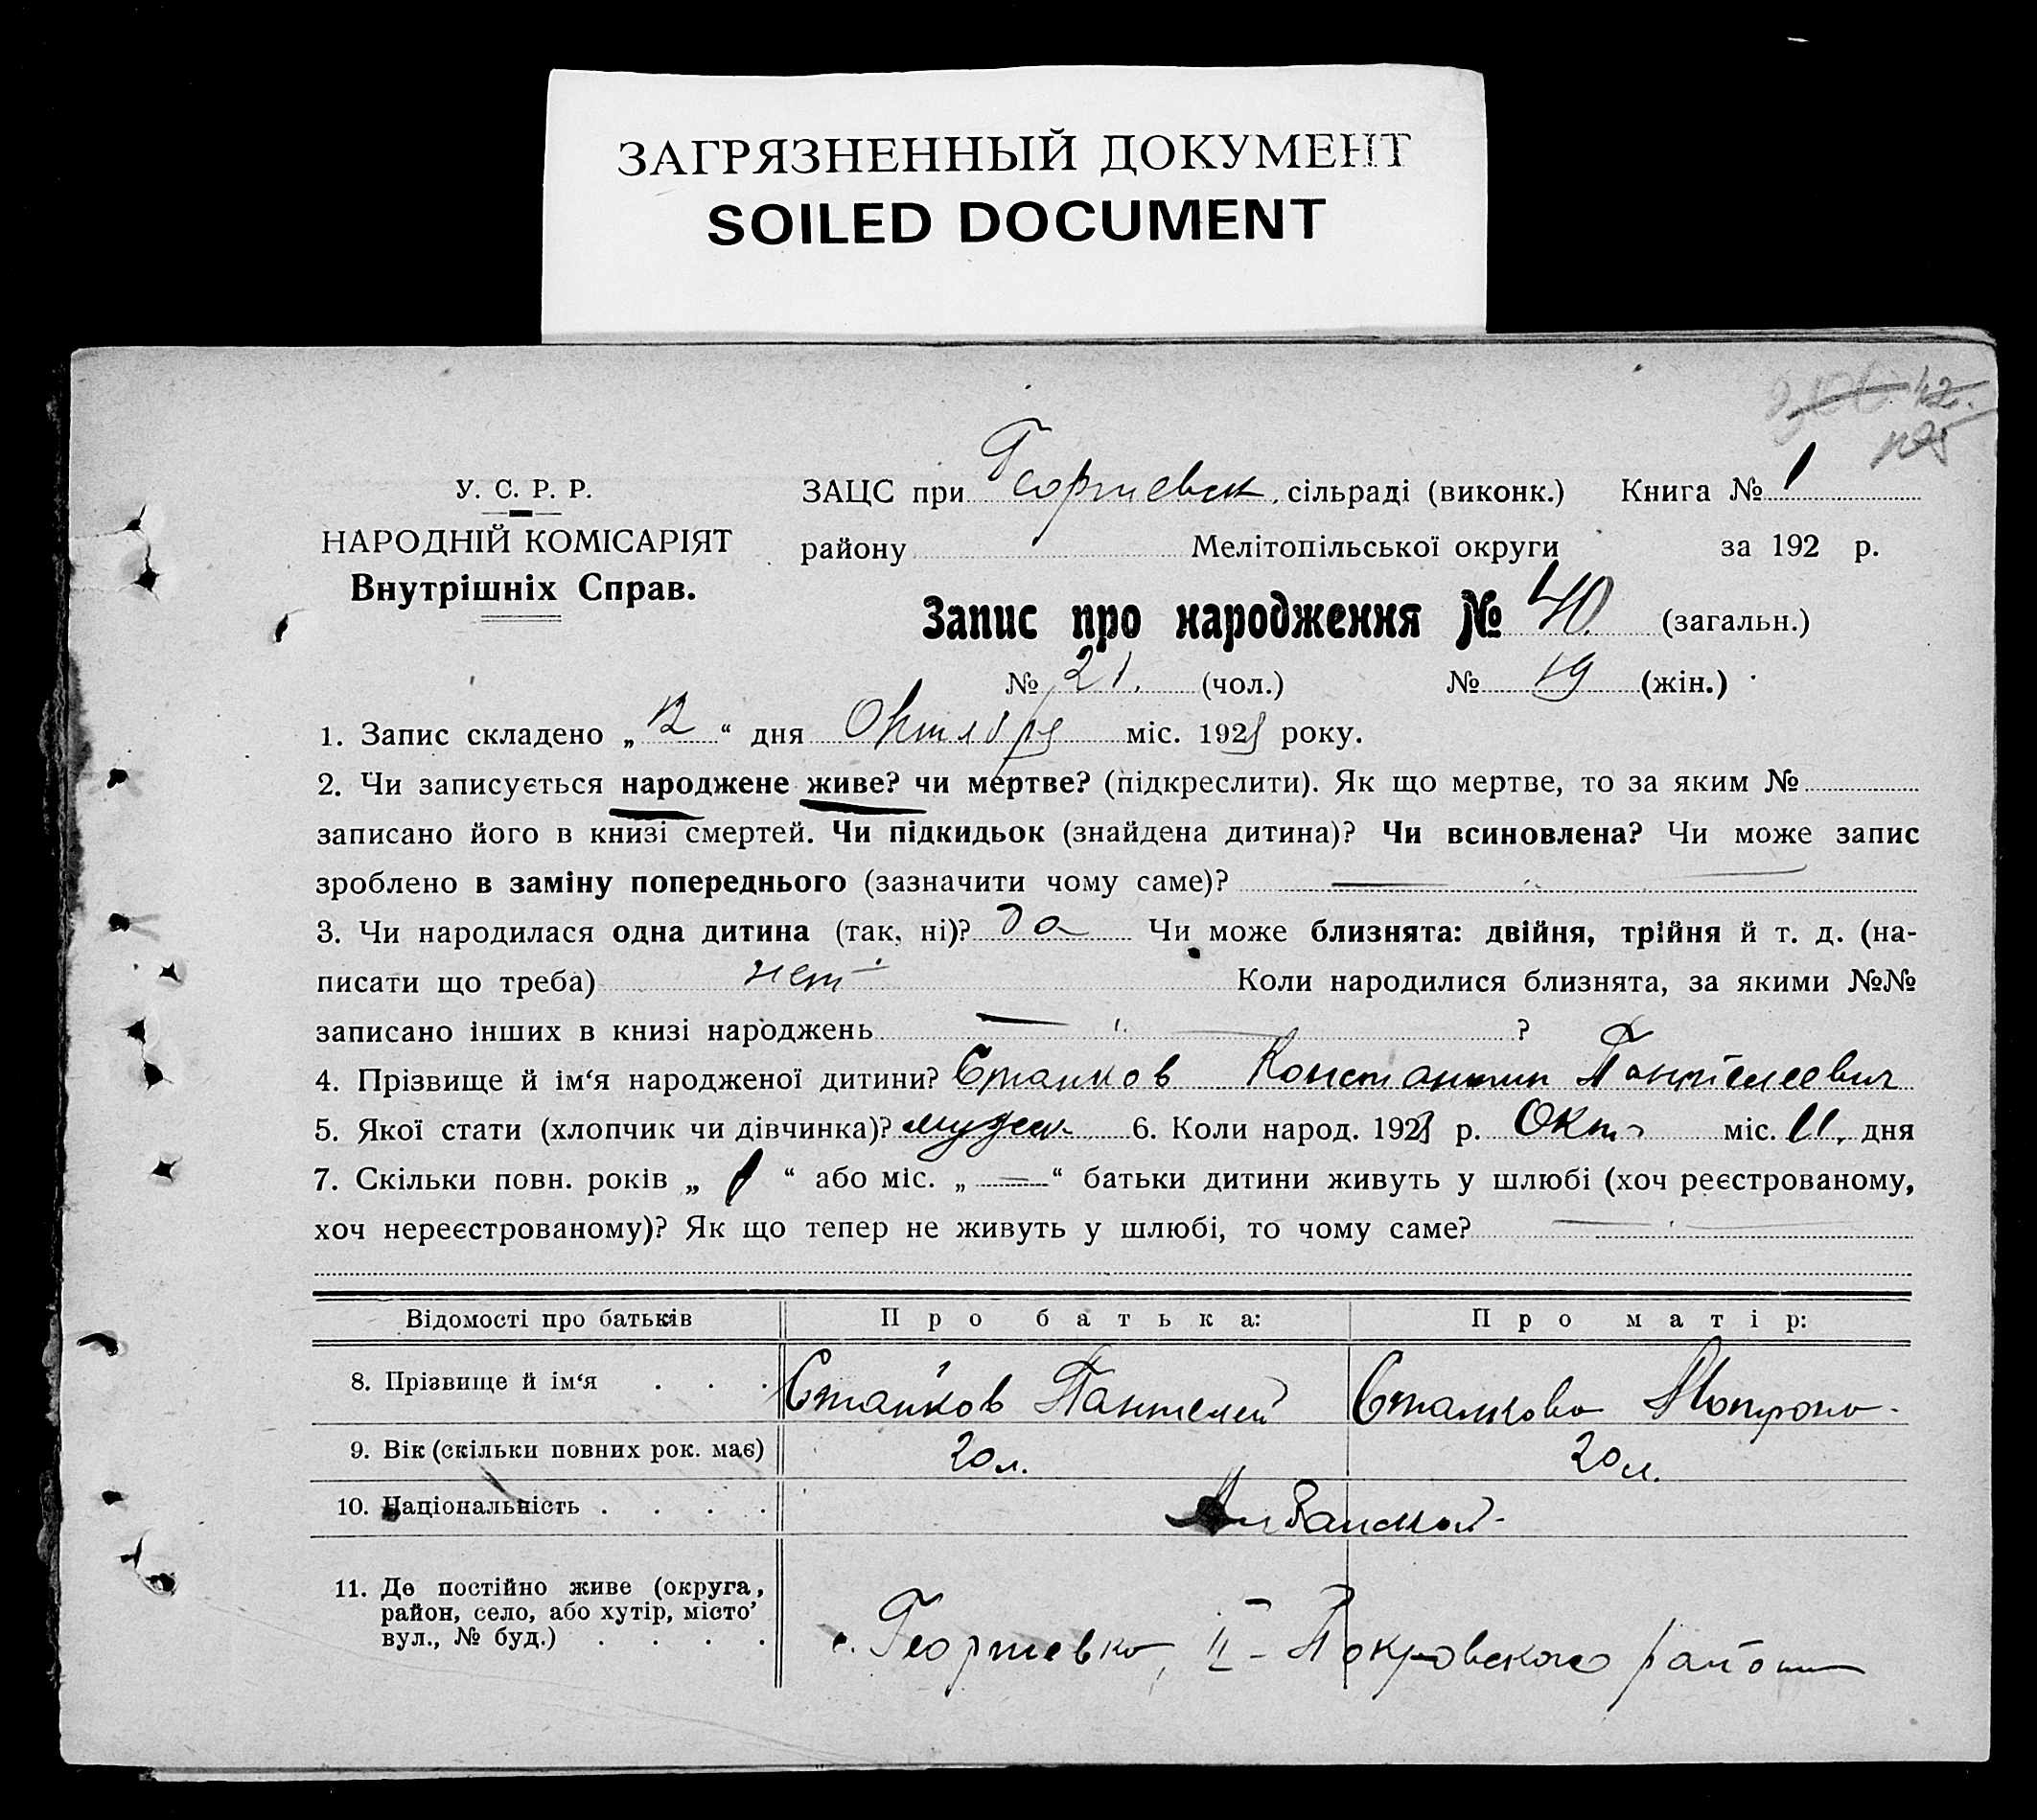 ЗАГРЯЗНЕННЫЙ ДОКУМЕНТ
SOILED DOCUMENT
42.
У. С. Р. Р.
НАРОДНІЙ КОМІСАРІЯТ
Внутрішніх Справ.
ЗАЦС при Георгиевск. сільраді (виконк.) Книга № 1
району Мелітопільської округи за 192 р.
Запис про народження № 40. (загальн.)
№ 21. (чол.) № 19 (жін.)
1. Запис складено „ 12 “ дня Октября міс. 192 року.
2. Чи записується народжене живе? чи мертве? (підкреслити). Як що мертве, то за яким №
записано його в книзі смертей. Чи підкидьок (знайдена дитина)? Чи всиновлена? Чи може запис
зроблено в заміну попереднього (зазначити чому саме)? —
3. Чи народилася одна дитина (так, ні)? да Чи може близнята: двійня, трійня й т. д. (на-
писати що треба) нет Коли народилися близнята, за якими №№
записано інших в книзі народжень — ?
4. Прізвище й ім‘я народженої дитини? Станков Константин Пантелеевич
5. Якої стати (хлопчик чи дівчинка)? мужск. 6. Коли народ. 192 р. Окт. міс. 11. дня
7. Скільки повн. років „ 1 “ або міс. „ — “ батьки дитини живуть у шлюбі (хоч реєстрованому,
хоч нереєстрованому)? Як що тепер не живуть у шлюбі, то чому саме? —
Відомості про батьків Про батька: Про матір:
8. Прізвище й ім‘я . . . Станков Пантелей Станкова Мотрона
9. Вік (скільки повних рок. має) 20 л. 20 л.
10. Національність . . . . Албанской
11. Де постійно живе (округа,
район, село, або хутір, місто,
вул., № буд.) . . . . с. Георгиевка, II-Покровского района